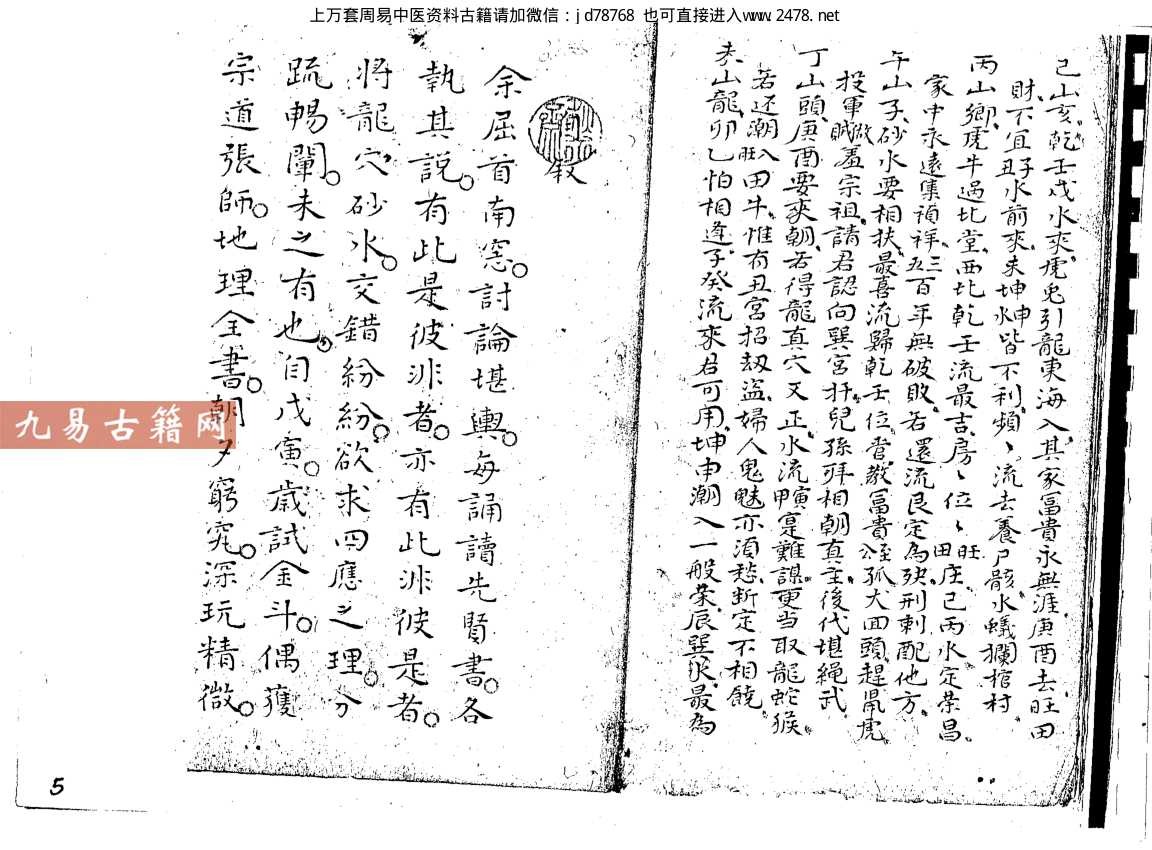 上万套周易中医资料古籍请加微信：jd78768 也可直接进入www.2478.net
巳山亥乾壬戌水來虎兔引龍東海入其家冨貴永無涯庚酉去旺田
財不宜丑子水前來未坤申水皆不利頻、流去養尸骸水蟻獨棺村
丙山鄉虎牛過北堂西北乾壬流最吉房、位、旺田庄巳丙水定荣昌
家中永遠集禎祥三五百年無破敗若還流艮定為殃刑剌配他方
午山子砂水要相扶最喜流歸乾壬位官教冨貴孤犬回頭趕鼠虎
投軍賊做羞宗祖請君認向巽宮扦兒孫拜相朝真主後代堪繩武
丁山頭庚酉要來朝若得龍真穴又正水流寅甲寔難謀更当取龍蛇猴
若还潮入旺田牛惟有丑宮招刼盗婦人鬼魅亦湏愁断定不相饒
未山龍卯乙怕相逢子癸流來君可用坤申潮入一般荣辰巽水最為
叙
余屈首南窓討論堪輿每誦讀先賢書各
執其説有此是彼非者亦有此非彼是者
将龍穴砂水交錯紛紛欲求四應之理分
疏暢闡未之有也自戊寅歲試金斗偶獲
宗道張師地理全書朝夕窮究深玩精微
九易古籍网
5